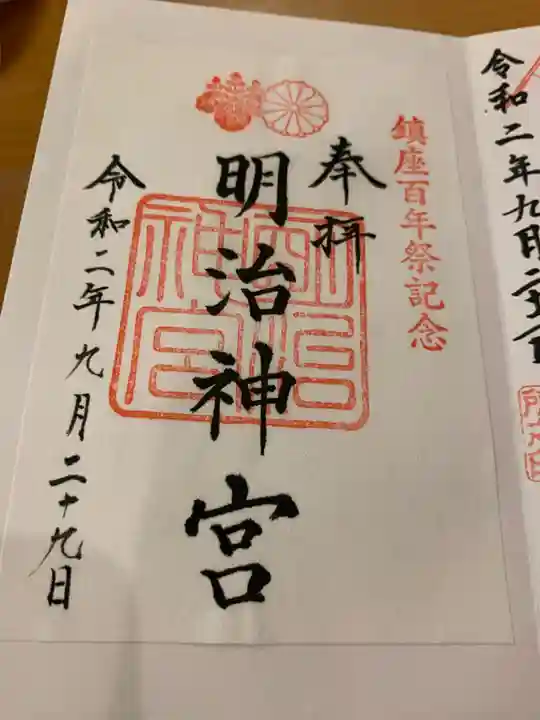 令和二年九月二
鎮座百年祭記念
奉拝
明治神宮
明治神宮
令和二年九月二十九日